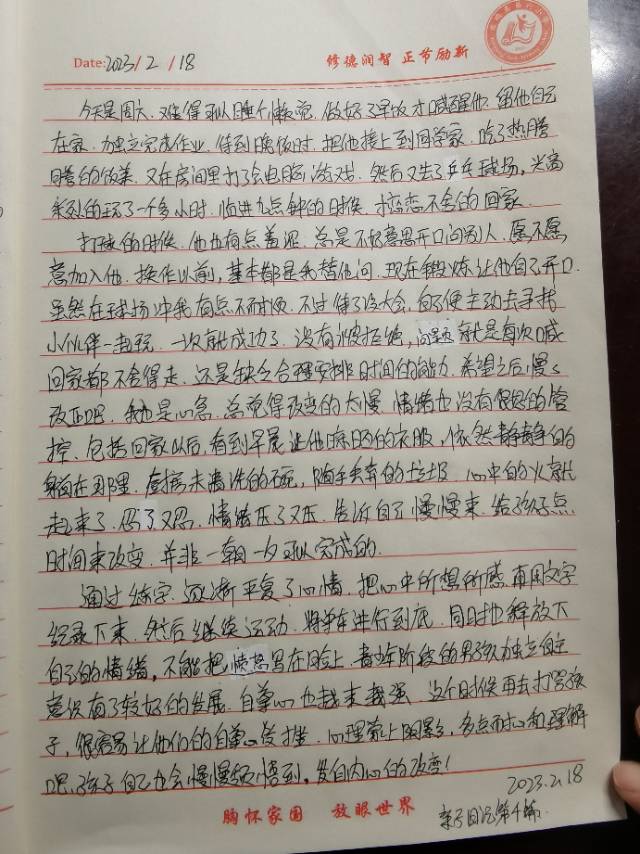 Date: 2023 / 2 / 18
修德润智 正节励新
今天是周六、难得可以睡个懒觉、做好了早饭才喊醒他、留他自己
在家、独立完成作业、待到晚饭时、把他接上到同学家、吃了热腾
腾的饭菜、又在房间里打了会电脑游戏、然后又去了乒乓球场，兴高
采烈的玩了一个多小时、临近九点钟的时候、才恋恋不舍的回家、
打球的时候、他也有点羞涩、总是不好意思开口问别人、愿不愿
意加入他、换作以前，基本都是我替他问、现在锻炼让他自己开口
虽然在球场冲我有点不耐烦、不过待了没大会，自己便主动去寻找
小伙伴一起玩、一次就成功了、没有被拒绝，问题就是每次喊
回家都不舍得走、还是缺乏合理安排时间的能力、希望之后慢慢
改正吧、我也是心急、总觉得改变的太慢、情绪也没有很好的管
控、包括回家以后，看到早晨让他晾晒的衣服，依然静静的
躺在那里、厨房未清洗的碗，随手丢弃的垃圾、心中的火就
起来了、忍了又忍、情绪压了又压、告诉自己慢慢来、给孩子点
时间来改变、并非一朝一夕可以完成的、
通过练字、逐渐平复了心情、把心中所想所感、再用文字
纪录下来、然后继续运动、将单车进行到底、同时也释放下
自己的情绪，不能把愤怒写在脸上、青少年阶段的男孩、独立自主
意识有了较好的发展、自尊心也越来越强、这个时候再去打骂孩
子，很容易让他们的自尊心受挫、心理蒙上阴影，多点耐心和理解
吧、孩子自己也会慢慢领悟到，发自内心的改变！
2023.2.18
亲子日记第千篇
胸怀家国 放眼世界